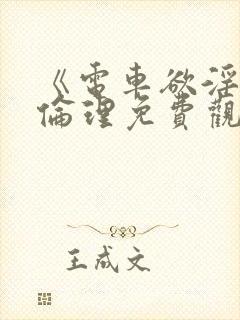 《電車欲淫
倫理免費觀
王成文